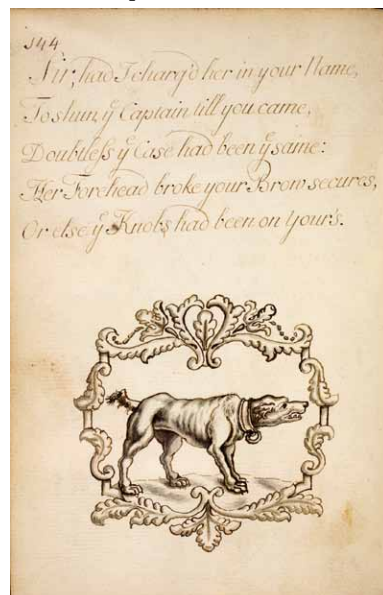 144
Sir, had I charg'd her in your Name,
To shun ÿ Captain till you came,
Doubtless ÿ Case had been ÿ same:
Her Forehead broke your Brow secures,
Or else ÿ Knobs had been on Your's.